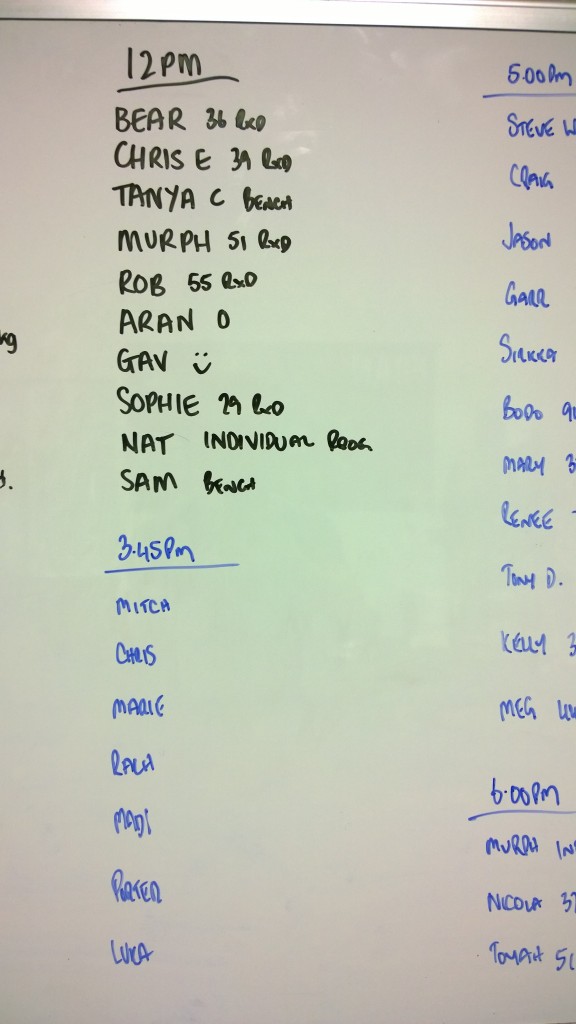 12PM
BEAR 36 RxD
CHRIS E 39 RxD
TANYA C BENCH
MURPH 51 RxD
ROB 55 RxD
ARAN 0
GAV
SOPHIE 29 RxD
NAT INDIVIDUAL PROG
SAM BENCH
3.45PM
MITCH
CHRIS
MARIE
RACH
MADI
PORTER
LUKA
kg
5.00PM
STEVE W
CRAIG
JASON
GARR
SIRKKA
BODO
MARY
RENEE
TONY D.
KELLY
MEG
6.00PM
MURPH
NICOLA
TOMAH